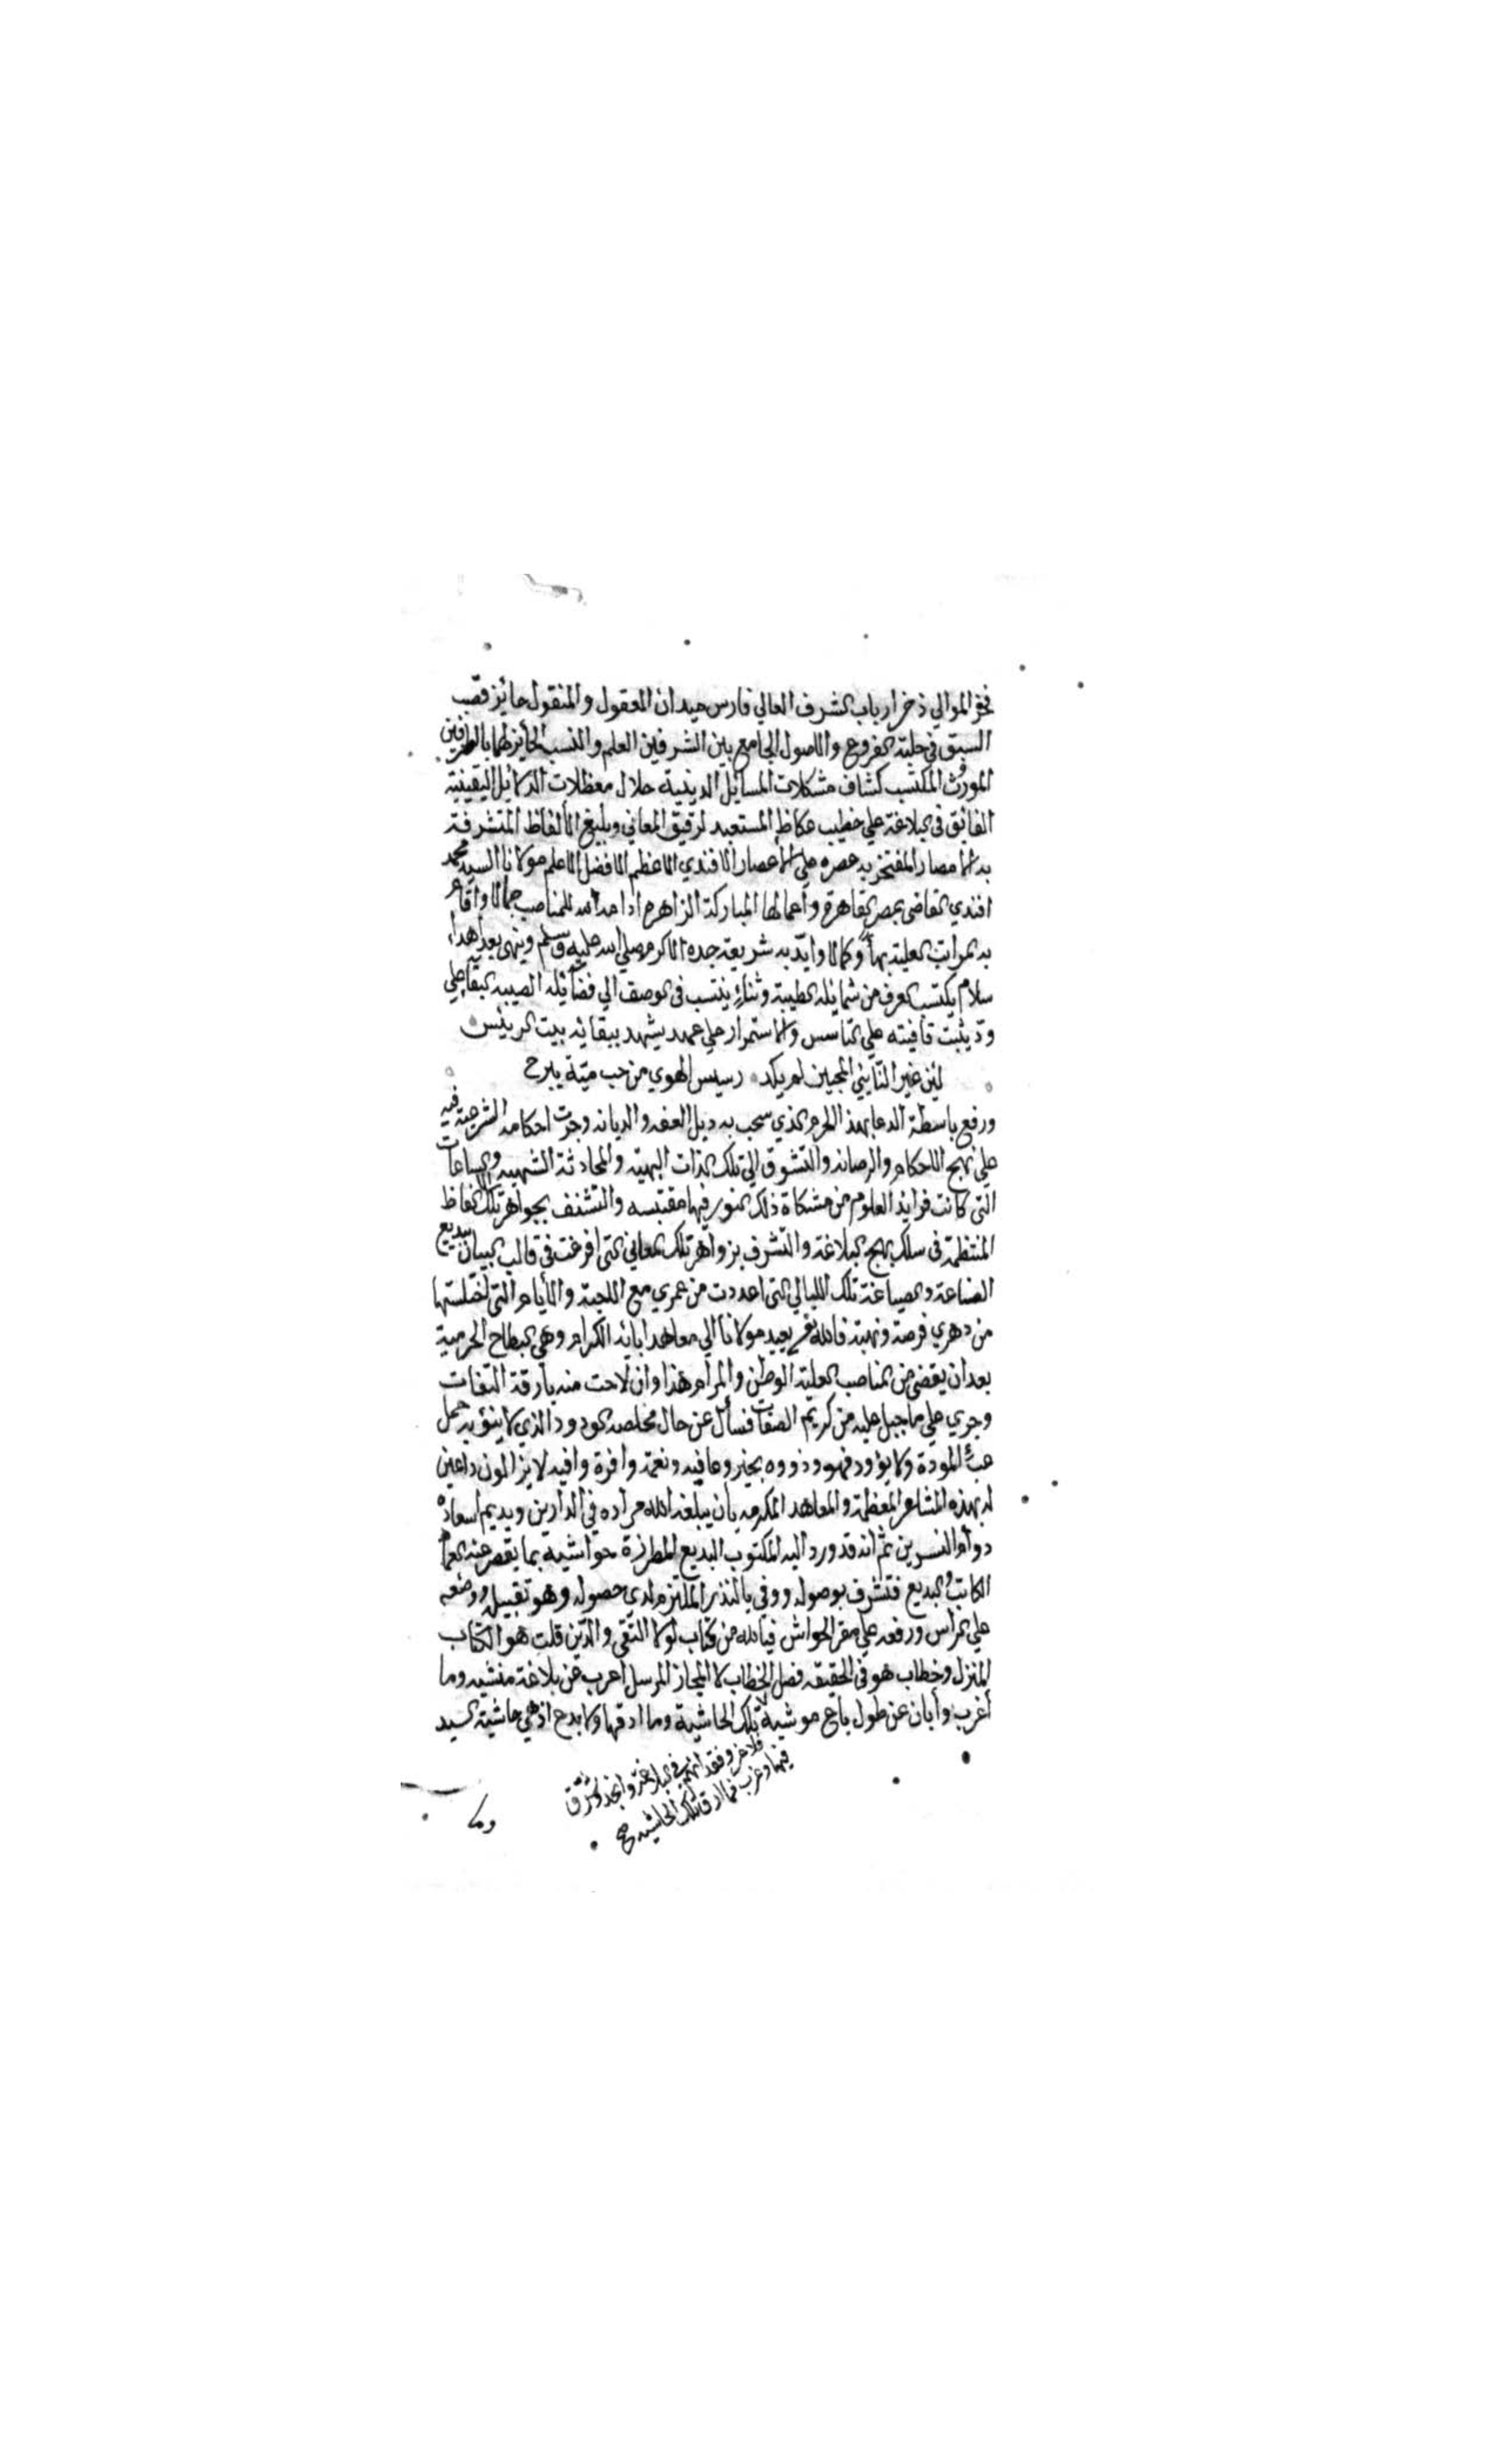 فخر الموالي ذخر ارباب الشرف العالي فارس ميدان المعقول والمنقول حائز قصب
السبق في حلبة الفروع والاصول الجامع بين الشرفين العلم والنسب الحائز لهما بالطرفين
الموَرُث المكتسب كشاف مشكلات المسايل الدينية حلال معظلات الدلايل اليقينية
الفائق في البلاغة علي خطيب عكاظ المستعبد لرقيق المعاني وبليغ الألفاظ المتشرفة
به الامصار المفتخر به عصره علي الاعصار الافندي الاعظم الافضل الاعلم مولانا السيد محمد
افندي القاضي بمصر القاهرة وأعمالها المباركة الزاهرة ادام الله للمناصب جمالا واقام
به المراتب العلية بهاً وكمالا وايّد به شريعة جده الاكرم صلي الله عليه وسلم وينهى بعد اهداء
سلام يكتسب العرف من شمايله الطيبة وثناءٍ ينتسب في الوصف الي فضائله الصيبه البقا علي
ودّ يثبت قافيته علي التاسس والاستمرار علي عهد يشهد ببقائه بيت الرئيس
لئن غير النّاي المحبين لم يكد رسيس الهوي من حب ميّة يبرح
ورفع باسطة الدعا بهذ الحرم الذي سحب به ديل العفه والديانه وجرت احكامه الشرعية فيه
علي نهج الاحكام والرصانه والتشوق الي تلك الذات البهيّه والمحادثة الشهيه والساعات
التي كانت فرايد العلوم من مشكاة ذلك النور فيها مقتبسه والتشنف بجواهر تلك الالفاظ
المنتظمة في سلك البلاغة والتشرف بزواهر تلك المعاني التي افرغت في قالب البيان بديع
الصناعة والصياغة تلك الليالي التي اعددت من عمري مع اللجبة والأيام التي اختلستها
من دهري فرصة ونهبة فالله تعالى يعيد مولانا الي معاهد ابائه الكرام وهي البطاح الحرمية
بعد ان يقضي من المناصب العلية الوطن والمرام هذا وان لاحت منه بارقة التفات
وجري علي ما جبل عليه من كريم الصفات فسأل عن حال مخلصه الودود الذي لا ينؤ به حمل
عبْ المودة ولا يؤود فهو وذووه بخير وعافيه ونعمة وافرة وافيه لا يزالون داعين
له بهذه المشاعر المعظمة والمعاهد المكرمه بان يبلغه الله مراده في الدارين ويديم اسعاده
دوام النسرين ثم انه قد ورد اليه المكتوب البديع المطرزة حواشيه بما يقصر عنه العماد
الكاتب والبديع فتشرف بوصوله ووفي بالنذر الملتزم لدي حصوله وهو تقبيله ووضعه
علي الراس ورفعه علي مقر الحواش فيالله من كتاب لولا التقى والدّين قلت هو الكتاب
المنزل وخطاب هو في الحقيقه فصل الخطاب لا المجاز المرسل اعرب عن بلاغة منشيه وما
أغرب وأبان عن طول باع موشية تلك الحاشية وما ادقها ولا بدع اذ هي حاشية السيد
فلا غرو فقد اتهم في البلاغة وانجد وشرق
فيها وغرب فما ارق تلك الحاشيه صح
وما